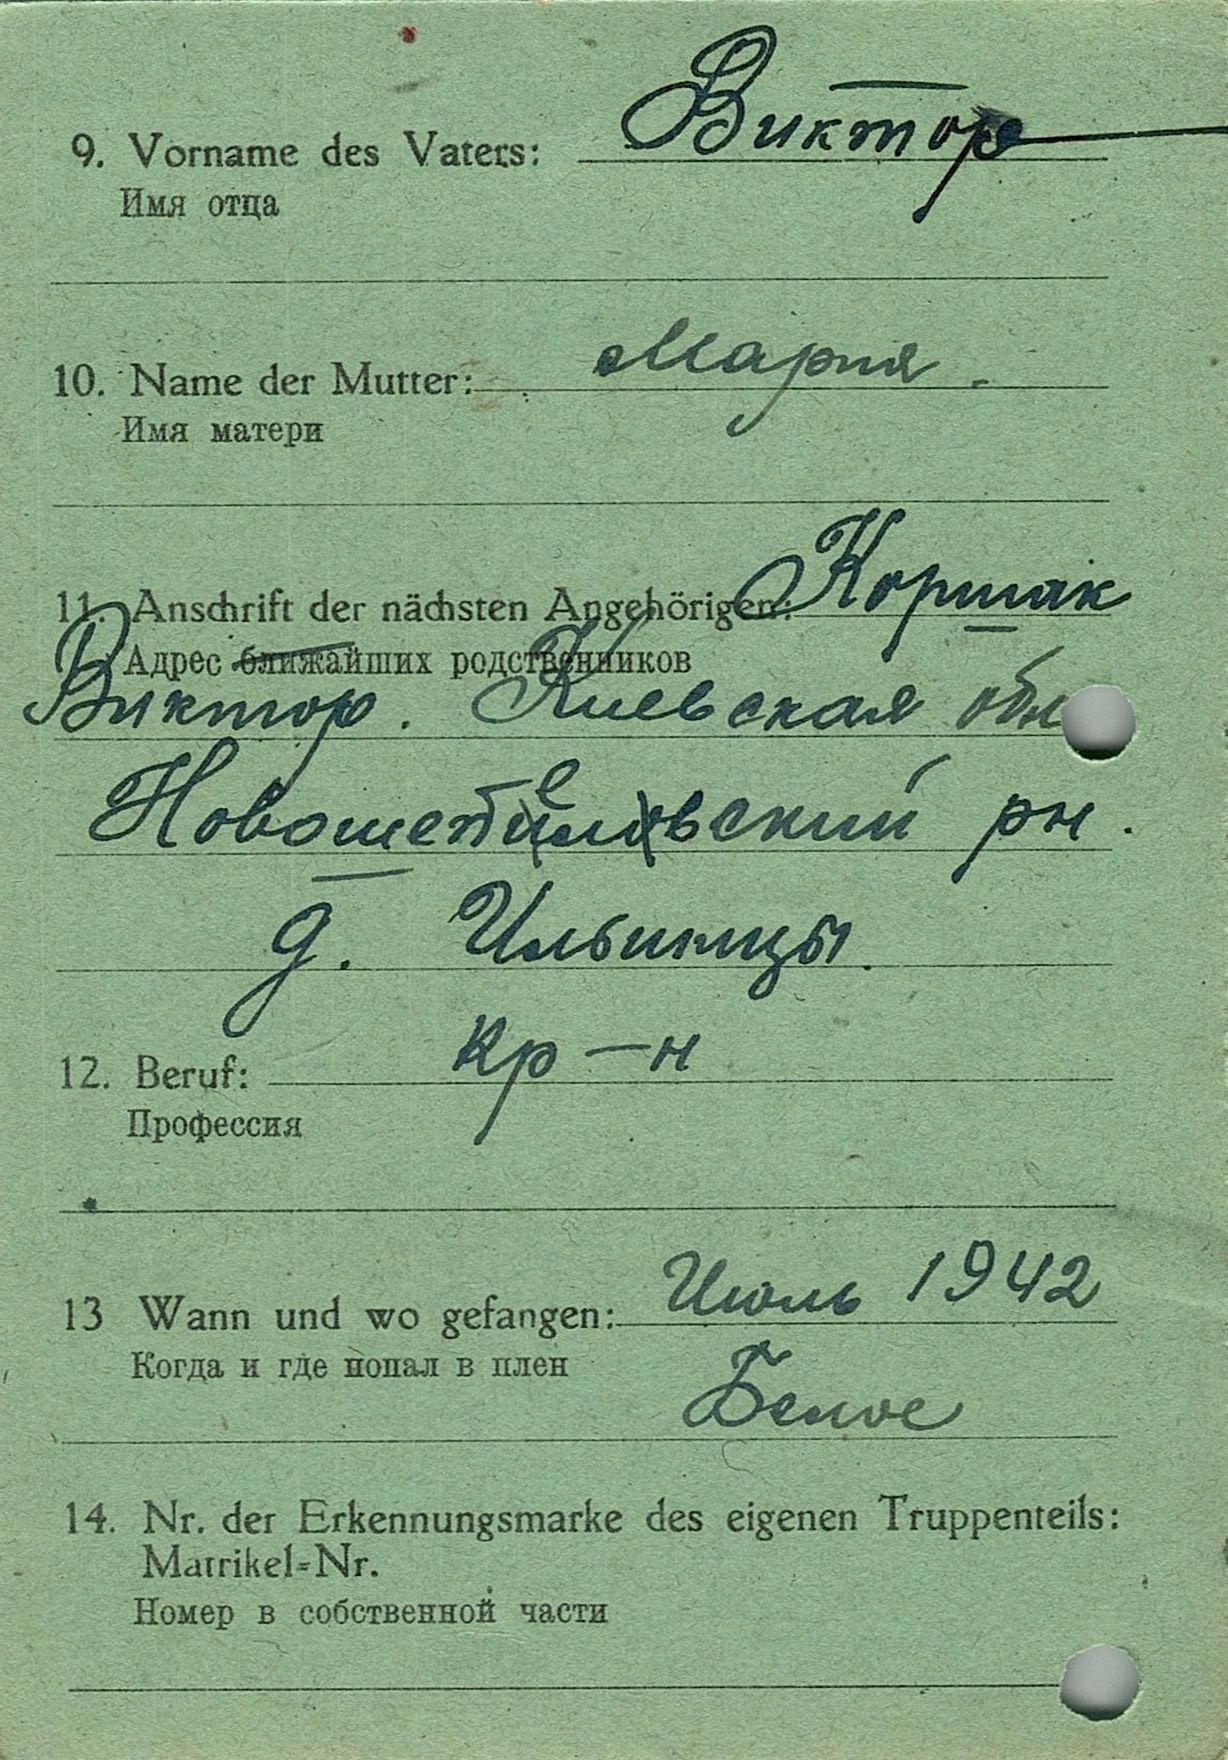 9. Vorname des Vaters: Виктор
Имя отца
10. Name der Mutter: Мария.
Имя матери
11. Anschrift der nächsten Angehörigen: Коршак
Адрес ближайших родственников
Виктор. Киевская обл
рн.
д. Ильинцы.
12. Beruf: кр-н
Профессия
13 Wann und wo gefangen: Июль 1942
Когда и где попал в плен
Белое
14. Nr. der Erkennungsmarke des eigenen Truppenteils:
Matrikel-Nr.
Номер в собственной части